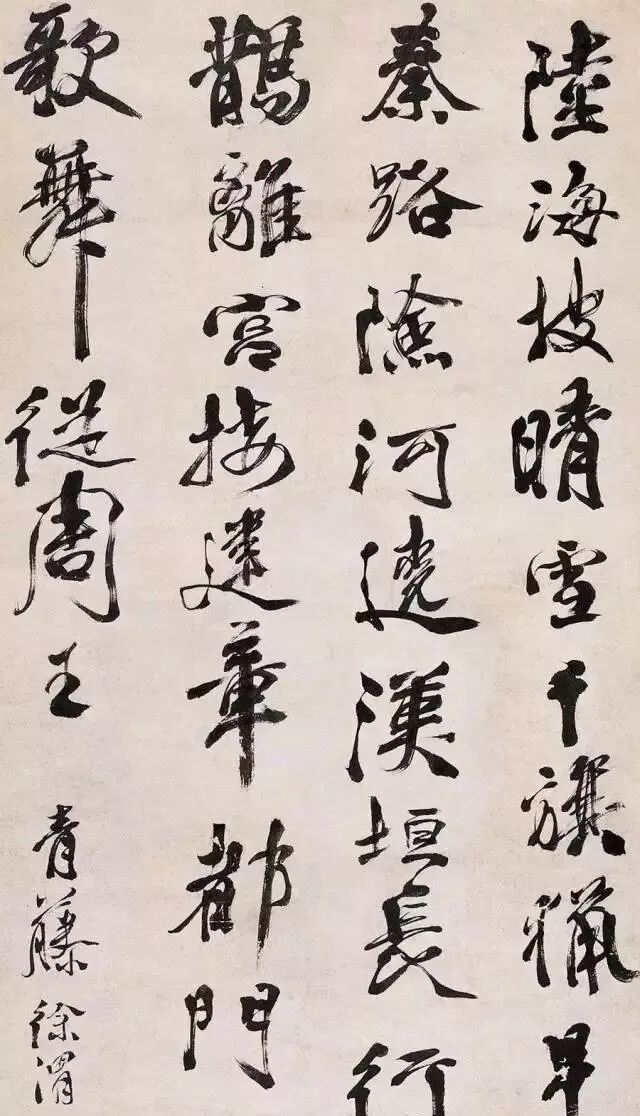 陸海披晴雪千旗獵早
秦路險河遶漢垣長行
鵲離宮接都門
歌舞從周王
青藤徐渭